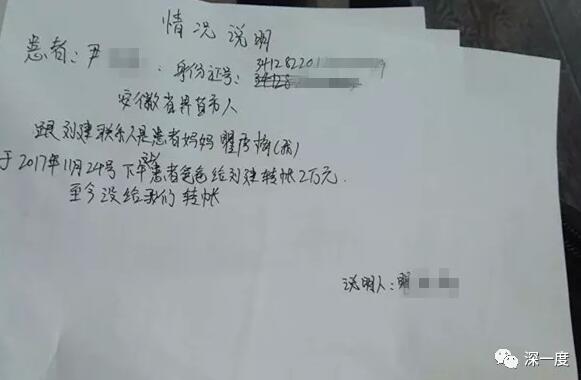 情况说明
患者:尹
身份证号: 341282201
34128
安徽省界首市人
跟刘建联系人是患者妈妈 瞿秀梅(我)
于2017年11月24号下午患者爸爸给刘建转帐2万元.
至今没给我们转帐
说明人:
深一度